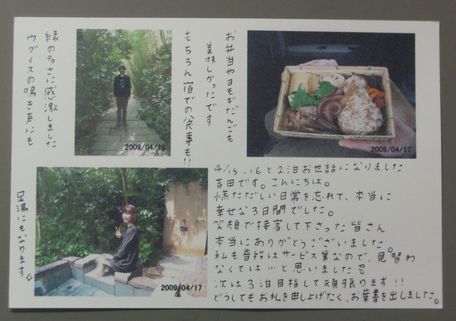 緑の多さに感激しました
ウグイスの鳴き声にも
2009/04/16
お弁当やヨモギだんごも
美味しかったです
もちろん宿での食事も!!
2009/04/17
足湯にもなります
2009/04/17
4/15、16と2泊お世話になりました
吉田です。こんにちは。
慌ただしい日常を忘れて、本当に
幸せな3日間でした。
笑顔で接客して下さった皆さん
本当にありがとうございました。
私も普段はサービス業なので、見習わ
なくては…と思いました
次は3泊目指して頑張ります!!
どうしてもお礼を申し上げたく、お葉書を出しました。